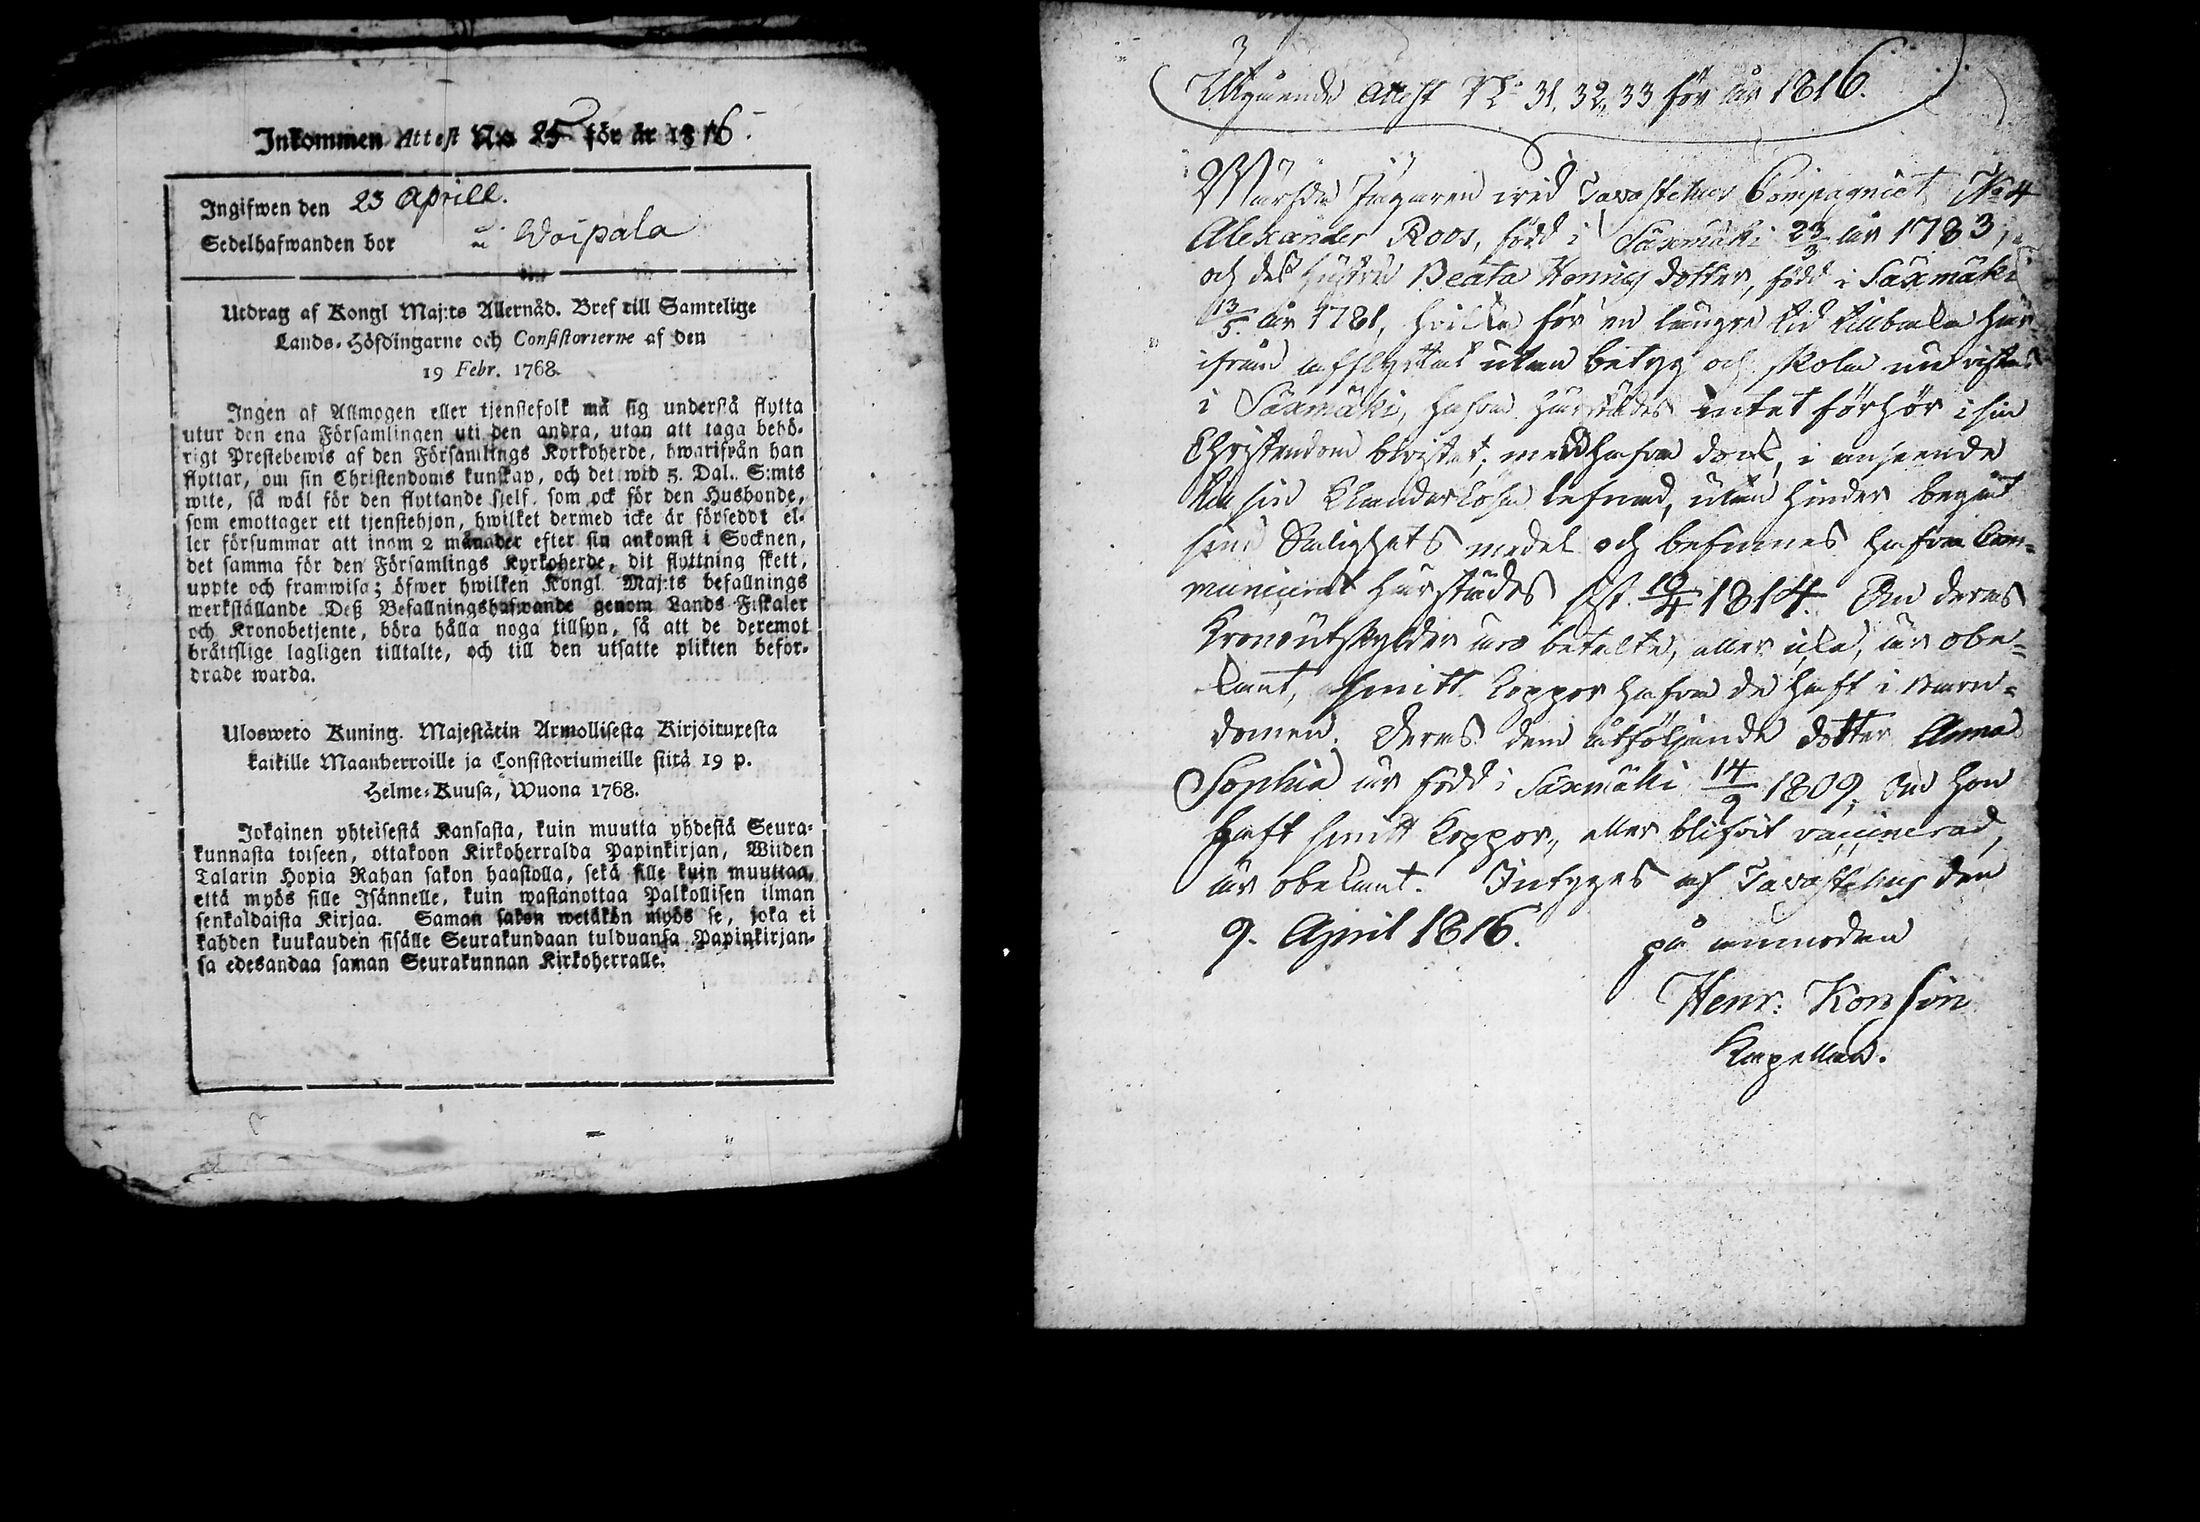 Inkommen Attest No 25 för år 1816.
Ingifwen den 23 Aprill.
Sedelhafwanden bor i Woipala
Utdrag af Kongl Maj:ts Allernåd. Bref till Samtelige
Lands-Höfdingarne och Consistorierne af den
19 Febr. 1768.
Ingen af Allmogen eller tjenstefolk må sig understå flytta
utur den ena Församlingen uti den andra, utan att taga behö-
rigt Prestebewis af den Församlings Kyrkoherde, hwarifrån han
flyttar, om sin Christendoms kunskap, och det wid 5. Dal. S:mts
wite, så wäl för den flyttande sjelf, som ock för den Husbonde,
som emottager ett tjenstehjon, hwilket dermed icke är försedt el-
ler försummar att inom 2 månader efter sin ankomst i Socknen,
det samma för den Församlings Kyrkoherde, dit flyttning skett,
uppte och framwisa; öfwer hwilken Kongl Maj:ts befallnings
werkställande Deß Befallningshafwande genom Lands Fiskaler
och Kronobetjente, böra hålla noga tillsyn, så att de deremot
bråttslige lagligen tilltalte, och till den utsatte plikten befor-
drade warda.
Ulosweto Kuning. Majestätin Armollisesta Kirjoituxesta
kaikille Maanherroille ja Consistoriumeille siitä 19 p.
Helme-Kuusa, Wuona 1768.
Jokainen yhteisestä Kansasta, kuin muutta yhdestä Seura-
kunnasta toiseen, ottakoon Kirkoherralda Papinkirjan, Wiiden
Talarin Hopia Rahan sakon haastolla, sekä sille kuin muuttaa,
että myös sille Isännelle, kuin wastanottaa Palkollisen ilman
senkaldaista Kirjaa. Saman sakon wetäkön myös se, joka ei
kahden kuukauden sisälle Seurakundaan tulduansa Papinkirjan-
sa edesandaa saman Seurakunnan Kirkoherralle.
Utgående Attest No 31, 32, 33 för år 1816.
Jägaren wid Tavastehus Compagniet No 4
Alexander Roos, född i Säxmäki 23/3 år 1783,
och deß hustru Beata Henrics dotter, född i Säxmäki
13/5 år 1781, hwilka för en längre tid tillbaka här-
ifrån afflyttat utan betyg och skola nu vistas
i Säxmäki, hafva härstädes intet förhör i sin
Christendom bevistat; men hafva dock, i anseende
till sin klanderlösa lefnad, utan hinder begått
sina Salighets medel och befinnes hafva Com-
municerat härstädes sist 10/4 1814. Om deras
Kronoutskylder äro betalte, eller icke, är obe-
kant, Smitt koppor hafva de haft i barn-
domen. Deras dem åtföljande dotter Anna
Sophia är född i Säxmäki 14/9 1809, Om hon
haft smitt koppor, eller blifvit vaccinerad,
är obekant. Intyges af Tavastehus den
9. April 1816. på ämbetets
Henr: Konsin
Kapellan.